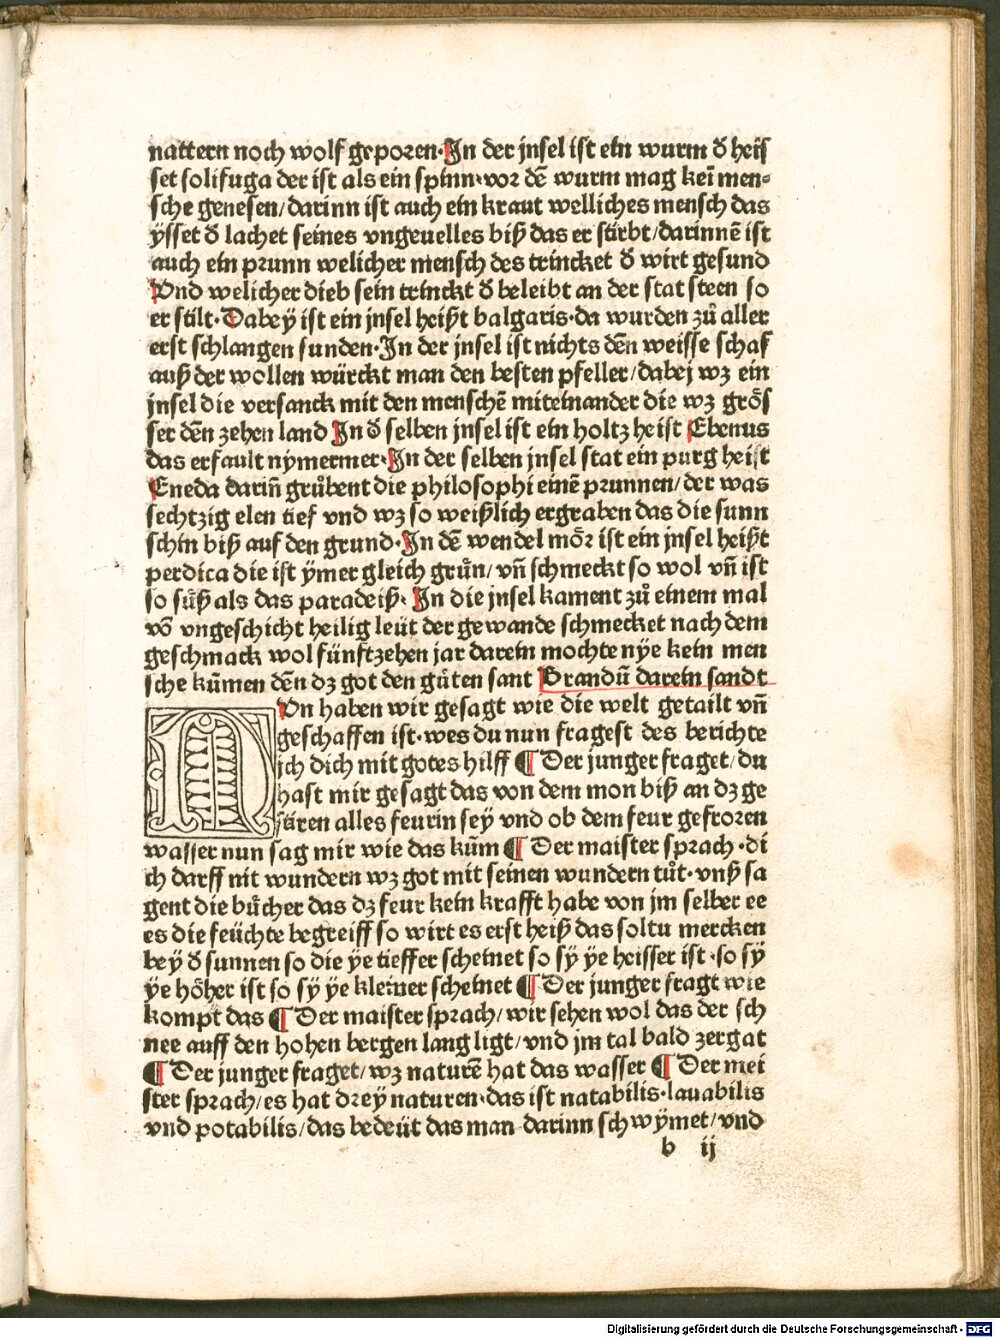 nattern noch wolf geporen·In der jnsel ist ein wurm d̄ heiſ
ſet ſolifuga der iſt als ein ſpinn·vor dē wurm mag kei men⸗
ſche geneſen/darinn iſt auch ein kraut welliches menſch das
ÿſſet d̄ lachet ſeines vngeuelles biß das er ſtirbt/darinnē iſt
auch ein prunn welicher menſch des trincket d̄ wirt geſund
Vnd welicher dieb ſein trinckt d̄ beleibt an der ſtat ſteen ſo
er ſtilt·Dabeÿ iſt ein jnſel heißt balgaris·da wurden zů aller
erſt ſchlangen funden·In der jnſel iſt nichts dēn weiſſe ſchaf
auß der wollen würckt man den beſten pfeller/dabej wz ein
jnſel die verſanck mit den menſchē miteinander die wz gröſ
ſer dēn zehen land In d̄ ſelben jnſel iſt ein holtz heiſt Ebenus
das erfault nymermer·In der ſelben jnſel ſtat ein purg heiſt
Eneda dariñ grůbent die philoſophi einē prunnen/der was
ſechtzig elen tief vnd wz ſo weißlich ergraben das die ſunn
ſchin biß auf den grund·In dē wendel mör iſt ein jnſel heißt
perdica die iſt ÿmer gleich grůn/vñ ſchmeckt ſo wol vñ iſt
ſo ſůß als das paradeiß· In die jnſel kament zů einem mal
vō vngeſchicht heilig leüt der gewande ſchmecket nach dem
geſchmack wol fünftzehen jar darein mochte nÿe kein men
ſche kūmen dēn dz got den gůten ſant Brandū darein ſandt
NVn haben wir geſagt wie die welt getailt vñ
geſchaffen iſt·wes du nun frageſt des berichte
ich dich mit gotes hilff ¶ Der junger fraget/du
haſt mir geſagt das von dem mon biß an dz ge
ſtiren alles feurin ſeÿ vnd ob dem feur gefroren
waſſer nun ſag mir wie das kūm ¶ Der maiſter ſprach·di
ch darff nit wundern wz got mit ſeinen wundern tůt·vnß ſa
gent die bücher das dz feur kein krafft habe von jm ſelber ee
es die feüchte begreiff ſo wirt es erſt heiß das ſoltu mercken
beÿ d̄ ſunnen ſo die ÿe tieffer ſcheinet ſo ſÿ ÿe heiſſer iſt·ſo ſÿ
ÿe höher iſt ſo ſÿ ÿe kleiner ſcheinet ¶ Der junger fragt wie
kompt das ¶ Der maiſter ſprach/wir ſehen wol das der ſch
nee auff den hohen bergen lang ligt/vnd jm tal bald zergat
¶ Der junger fraget/wz naturē hat das waſſer ¶ Der mei
ſter ſprach/es hat dreÿ naturen·das iſt natabilis·lauabilis
vnd potabilis/das bedeüt das man darinn ſchwÿmet/vnd
b ij
Digitalisierung gefördert durch die Deutsche Forschungsgemeinschaft - DFG